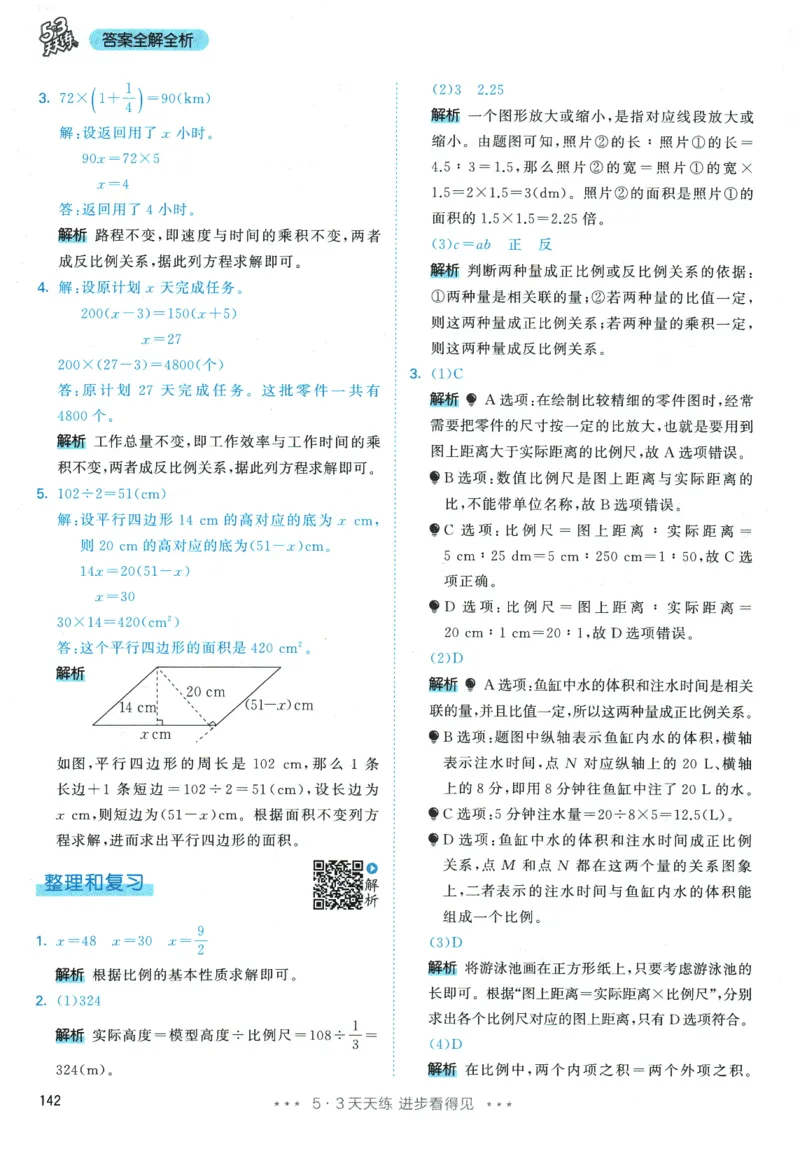 5·3
天天练
答案全解全析
3. 72×(1+1/4)=90(km)
解:设返回用了 x 小时。
90x=72×5
x=4
答:返回用了 4 小时。
解析 路程不变,即速度与时间的乘积不变,两者
成反比例关系,据此列方程求解即可。
4. 解:设原计划 x 天完成任务。
200(x-3)=150(x+5)
x=27
200×(27-3)=4800(个)
答:原计划 27 天完成任务。这批零件一共有
4800 个。
解析 工作总量不变,即工作效率与工作时间的乘
积不变,两者成反比例关系,据此列方程求解即可。
5. 102÷2=51(cm)
解:设平行四边形 14 cm 的高对应的底为 x cm,
则 20 cm 的高对应的底为(51-x)cm。
14x=20(51-x)
x=30
30×14=420(cm²)
答:这个平行四边形的面积是 420 cm²。
解析
20 cm
14 cm
(51-x)cm
x cm
如图,平行四边形的周长是 102 cm,那么 1 条
长边+1 条短边=102÷2=51(cm),设长边为
x cm,则短边为(51-x)cm。根据面积不变列方
程求解,进而求出平行四边形的面积。
整理和复习
解析
1. x=48 x=30 x=9/2
解析 根据比例的基本性质求解即可。
2. (1)324
解析 实际高度=模型高度÷比例尺=108÷1/3=
324(m)。
(2)3 2.25
解析 一个图形放大或缩小,是指对应线段放大或
缩小。由题图可知,照片②的长∶照片①的长=
4.5∶3=1.5,那么照片②的宽=照片①的宽×
1.5=2×1.5=3(dm)。照片②的面积是照片①的
面积的 1.5×1.5=2.25 倍。
(3)c=ab 正 反
解析 判断两种量成正比例或反比例关系的依据:
①两种量是相关联的量;②若两种量的比值一定,
则这两种量成正比例关系;若两种量的乘积一定,
则这两种量成反比例关系。
3. (1)C
解析 A 选项:在绘制比较精细的零件图时,经常
需要把零件的尺寸按一定的比放大,也就是要用到
图上距离大于实际距离的比例尺,故 A 选项错误。
B 选项:数值比例尺是图上距离与实际距离的
比,不能带单位名称,故 B 选项错误。
C 选项:比例尺=图上距离∶实际距离=
5 cm∶25 dm=5 cm∶250 cm=1∶50,故 C 选
项正确。
D 选项:比例尺=图上距离∶实际距离=
20 cm∶1 cm=20∶1,故 D 选项错误。
(2)D
解析 A 选项:鱼缸中水的体积和注水时间是相关
联的量,并且比值一定,所以这两种量成正比例关系。
B 选项:题图中纵轴表示鱼缸内水的体积,横轴
表示注水时间,点 N 对应纵轴上的 20 L、横轴
上的 8 分,即用 8 分钟往鱼缸中注了 20 L 的水。
C 选项:5 分钟注水量=20÷8×5=12.5(L)。
D 选项:鱼缸中水的体积和注水时间成正比例
关系,点 M 和点 N 都在这两个量的关系图象
上,二者表示的注水时间与鱼缸内水的体积能
组成一个比例。
(3)D
解析 将游泳池画在正方形纸上,只要考虑游泳池的
长即可。根据“图上距离=实际距离×比例尺”,分别
求出各个比例尺对应的图上距离,只有 D 选项符合。
(4)D
解析 在比例中,两个内项之积=两个外项之积。
142
*** 5·3天天练 进步看得见 ***